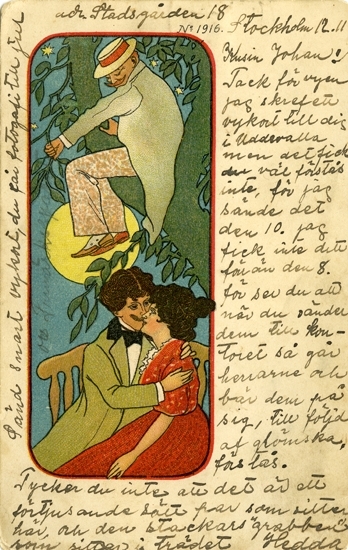 adr. Stadsgården 18
No 1916. Stockholm 12.11
Kusin Johan!
Tack för vyen
jag skref ett
vykort till dig
i Uddevalla
men det fick
du väl förstås
inte, för jag
sände det
den 10. jag
fick inte ditt
förän den 8.
för ser du att
när du sänder
dem till kon-
toret så går
herrarne och
bär dem på
sig, till följd
af glömska,
förstås.
Tycker du inte att det är ett
förtjusande sött par som sitter
här, och den stackars grabben
som sitter i trädet Hedda
Sänd snart vykort, du får fotografi till jul